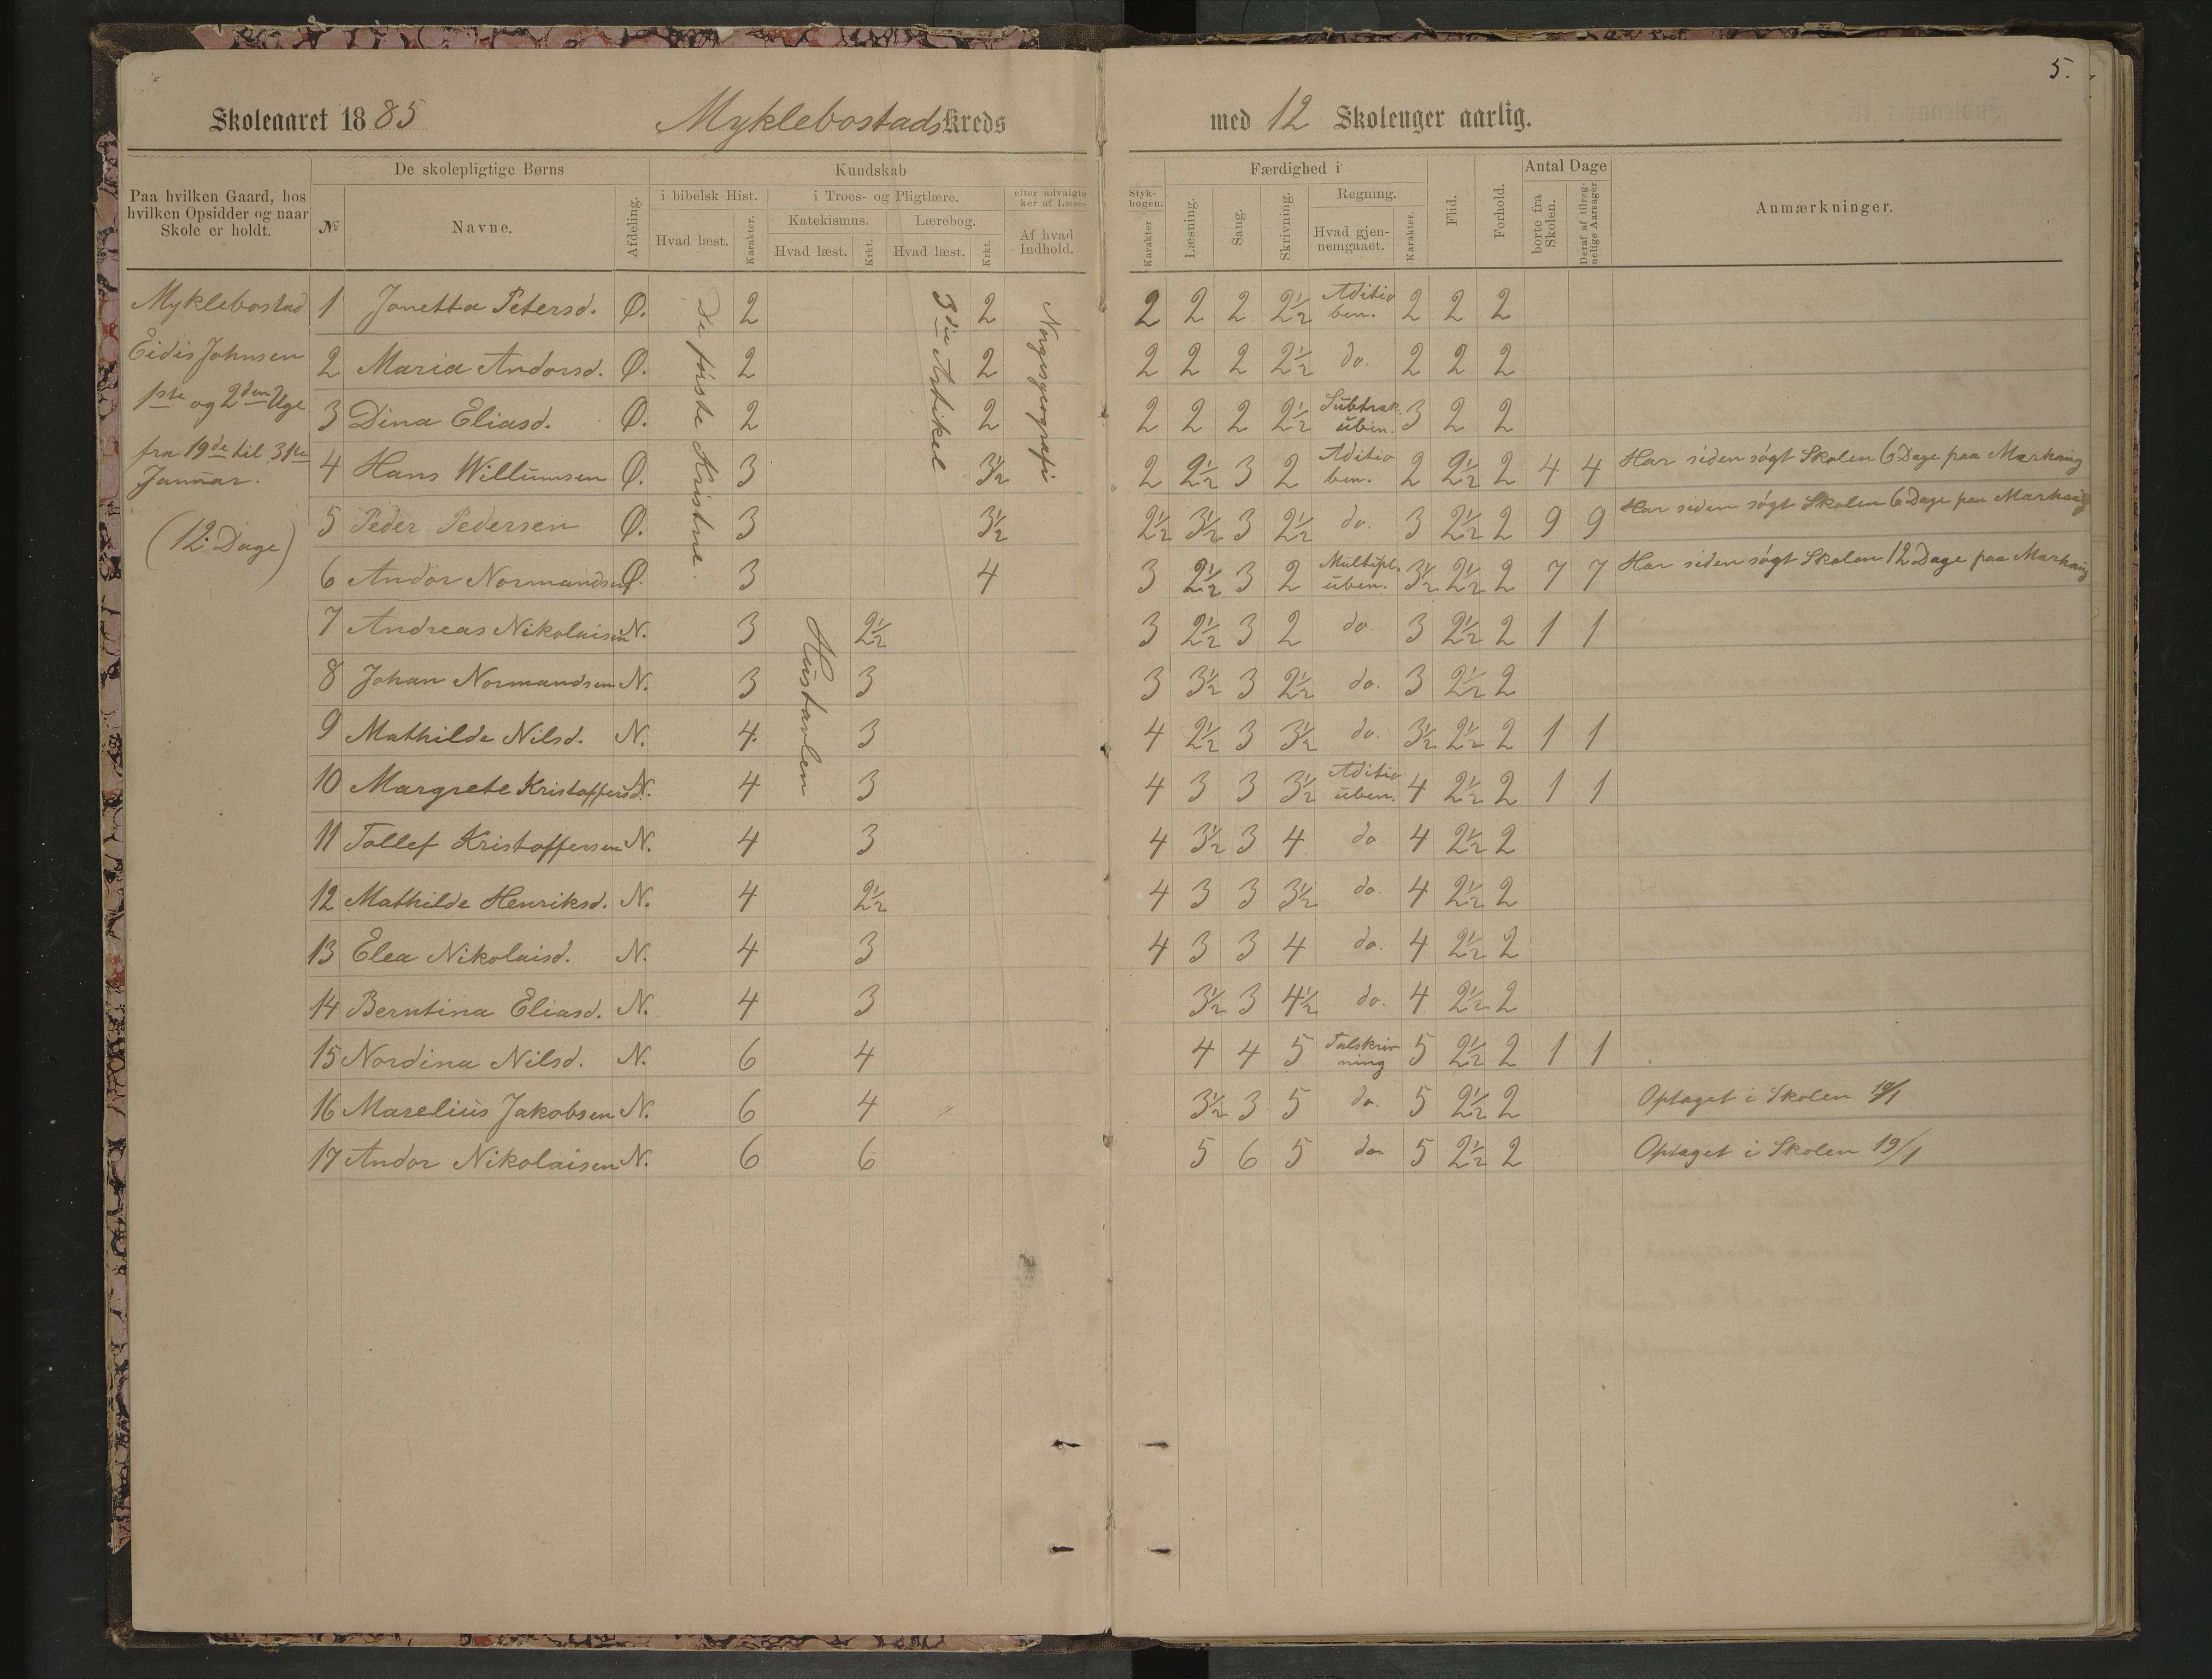 5.
Skoleaaret 1885 Myklebostads Kreds med 12 Skoleuger aarlig.
Paa hvilken Gaard, hos hvilken Opsidder og naar Skole er holdt.
De skolepligtige Børns
№ Navne. Afdeling.
Kundskab
i bibelsk Hist. i Troes- og Pligtlære. efter udvalgte
ker af Læse-
Katekismus. Lærebog.
Hvad læst. Karakter. Hvad læst. Krkt. Hvad læst. Krkt. Af hvad Indhold.
Styk-
bogen.
Karakter
Færdighed i
Læsning. Sang. Skrivning. Regning.
Hvad gjennemgaaet. Karakter.
Flid. Forhold.
Antal Dage
borte fra Skolen. Deraf af tilregnelige Aarsager
Anmærkninger.
Myklebostad
Eidis Johnsen
1ste og 2den Uge
fra 19de til 31te
Januar.
(12 Dage)
De første Kristne.
3die Artikel
Norgesgeografi
Hustavlen
1 Jonetta Petersd. Ø. 2 2 2 2 2 2½ Aditio ben. 2 2 2
2 Maria Andorsd. Ø. 2 2 2 2 2 2½ do. 2 2 2
3 Dina Eliasd. Ø. 2 2 2 2 2 2½ Subtrak. üben. 3 2 2
4 Hans Willumsen Ø. 3 3½ 2 2½ 3 2 Aditio ben. 2 2½ 2 4 4 Har siden søgt Skolen 6 Dage paa Markæng
5 Peder Pedersen Ø. 3 3½ 2½ 3½ 3 2½ do. 3 2½ 2 9 9 Har siden søgt Skolen 6 Dage paa Markæng
6 Andor Normandsen Ø. 3 4 3 2½ 3 2 Multipl. üben. 3½ 2½ 2 7 7 Har siden søgt Skolen 12 Dage paa Markæng
7 Andreas Nikolaisen N. 3 2½ 3 2½ 3 2 do. 3 2½ 2 1 1
8 Johan Normandsen N. 3 3 3 3½ 3 2½ do. 3 2½ 2
9 Mathilde Nilsd. N. 4. 3 4 2½ 3 3½ do. 3½ 2½ 2 1 1
10 Margrete Kristoffersd. N. 4 3 4 3 3 3½ Aditio üben. 4 2½ 2 1 1
11 Tollef Kristoffersen N. 4 3 4 3½ 3 4 do 4 2½ 2
12 Mathilde Henriksd. N. 4 2½ 4 3 3 3½ do. 4 2½ 2
13 Elea Nikolaisd. N. 4 3 4 3 3 4 do. 4 2½ 2
14 Berntina Eliasd. N. 4 3 3½ 3 4½ do. 4 2½ 2
15 Nordina Nilsd. N. 6 4 4 4 5 Talskriv ning 5 2½ 2 1 1
16 Marelius Jakobsen N. 6 4 3½ 3 5 do. 5 2½ 2 Optaget i Skolen 19/1
17 Andor Nikolaisen N. 6 6 5 6 5 do. 5 2½ 2 Optaget i Skolen 19/1